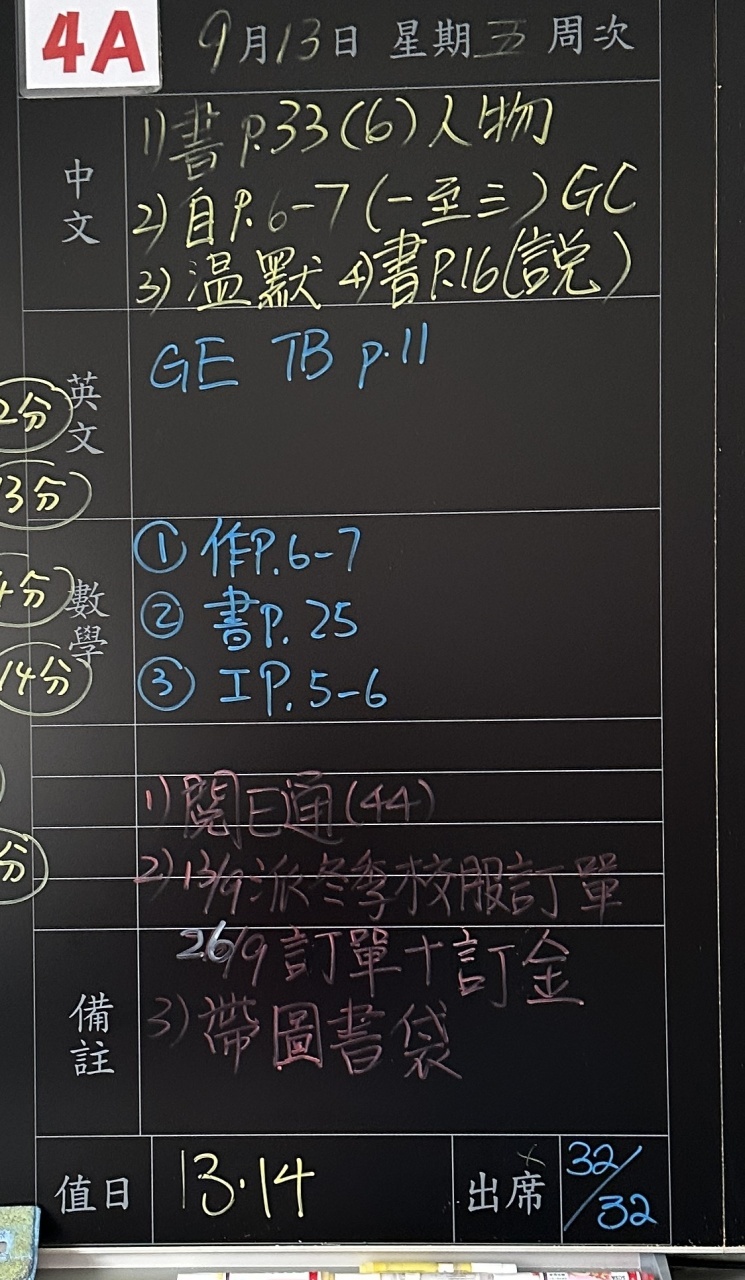 4A
9月13日 星期五 周次
中文
1) 書P.33(6)人物
2) 自P.6-7(一至三)GC
3) 溫默 4)書P.16(說)
英文
GE TB p.11
2分
13分
數學
① 作P.6-7
② 書P.25
③ 工P.5-6
4分
14分
分
1) 閱E通(44)
2) 13/9派冬季校服訂單
26/9訂單+訂金
備註
3) 帶圖書袋
值日
13.14
出席
32/32